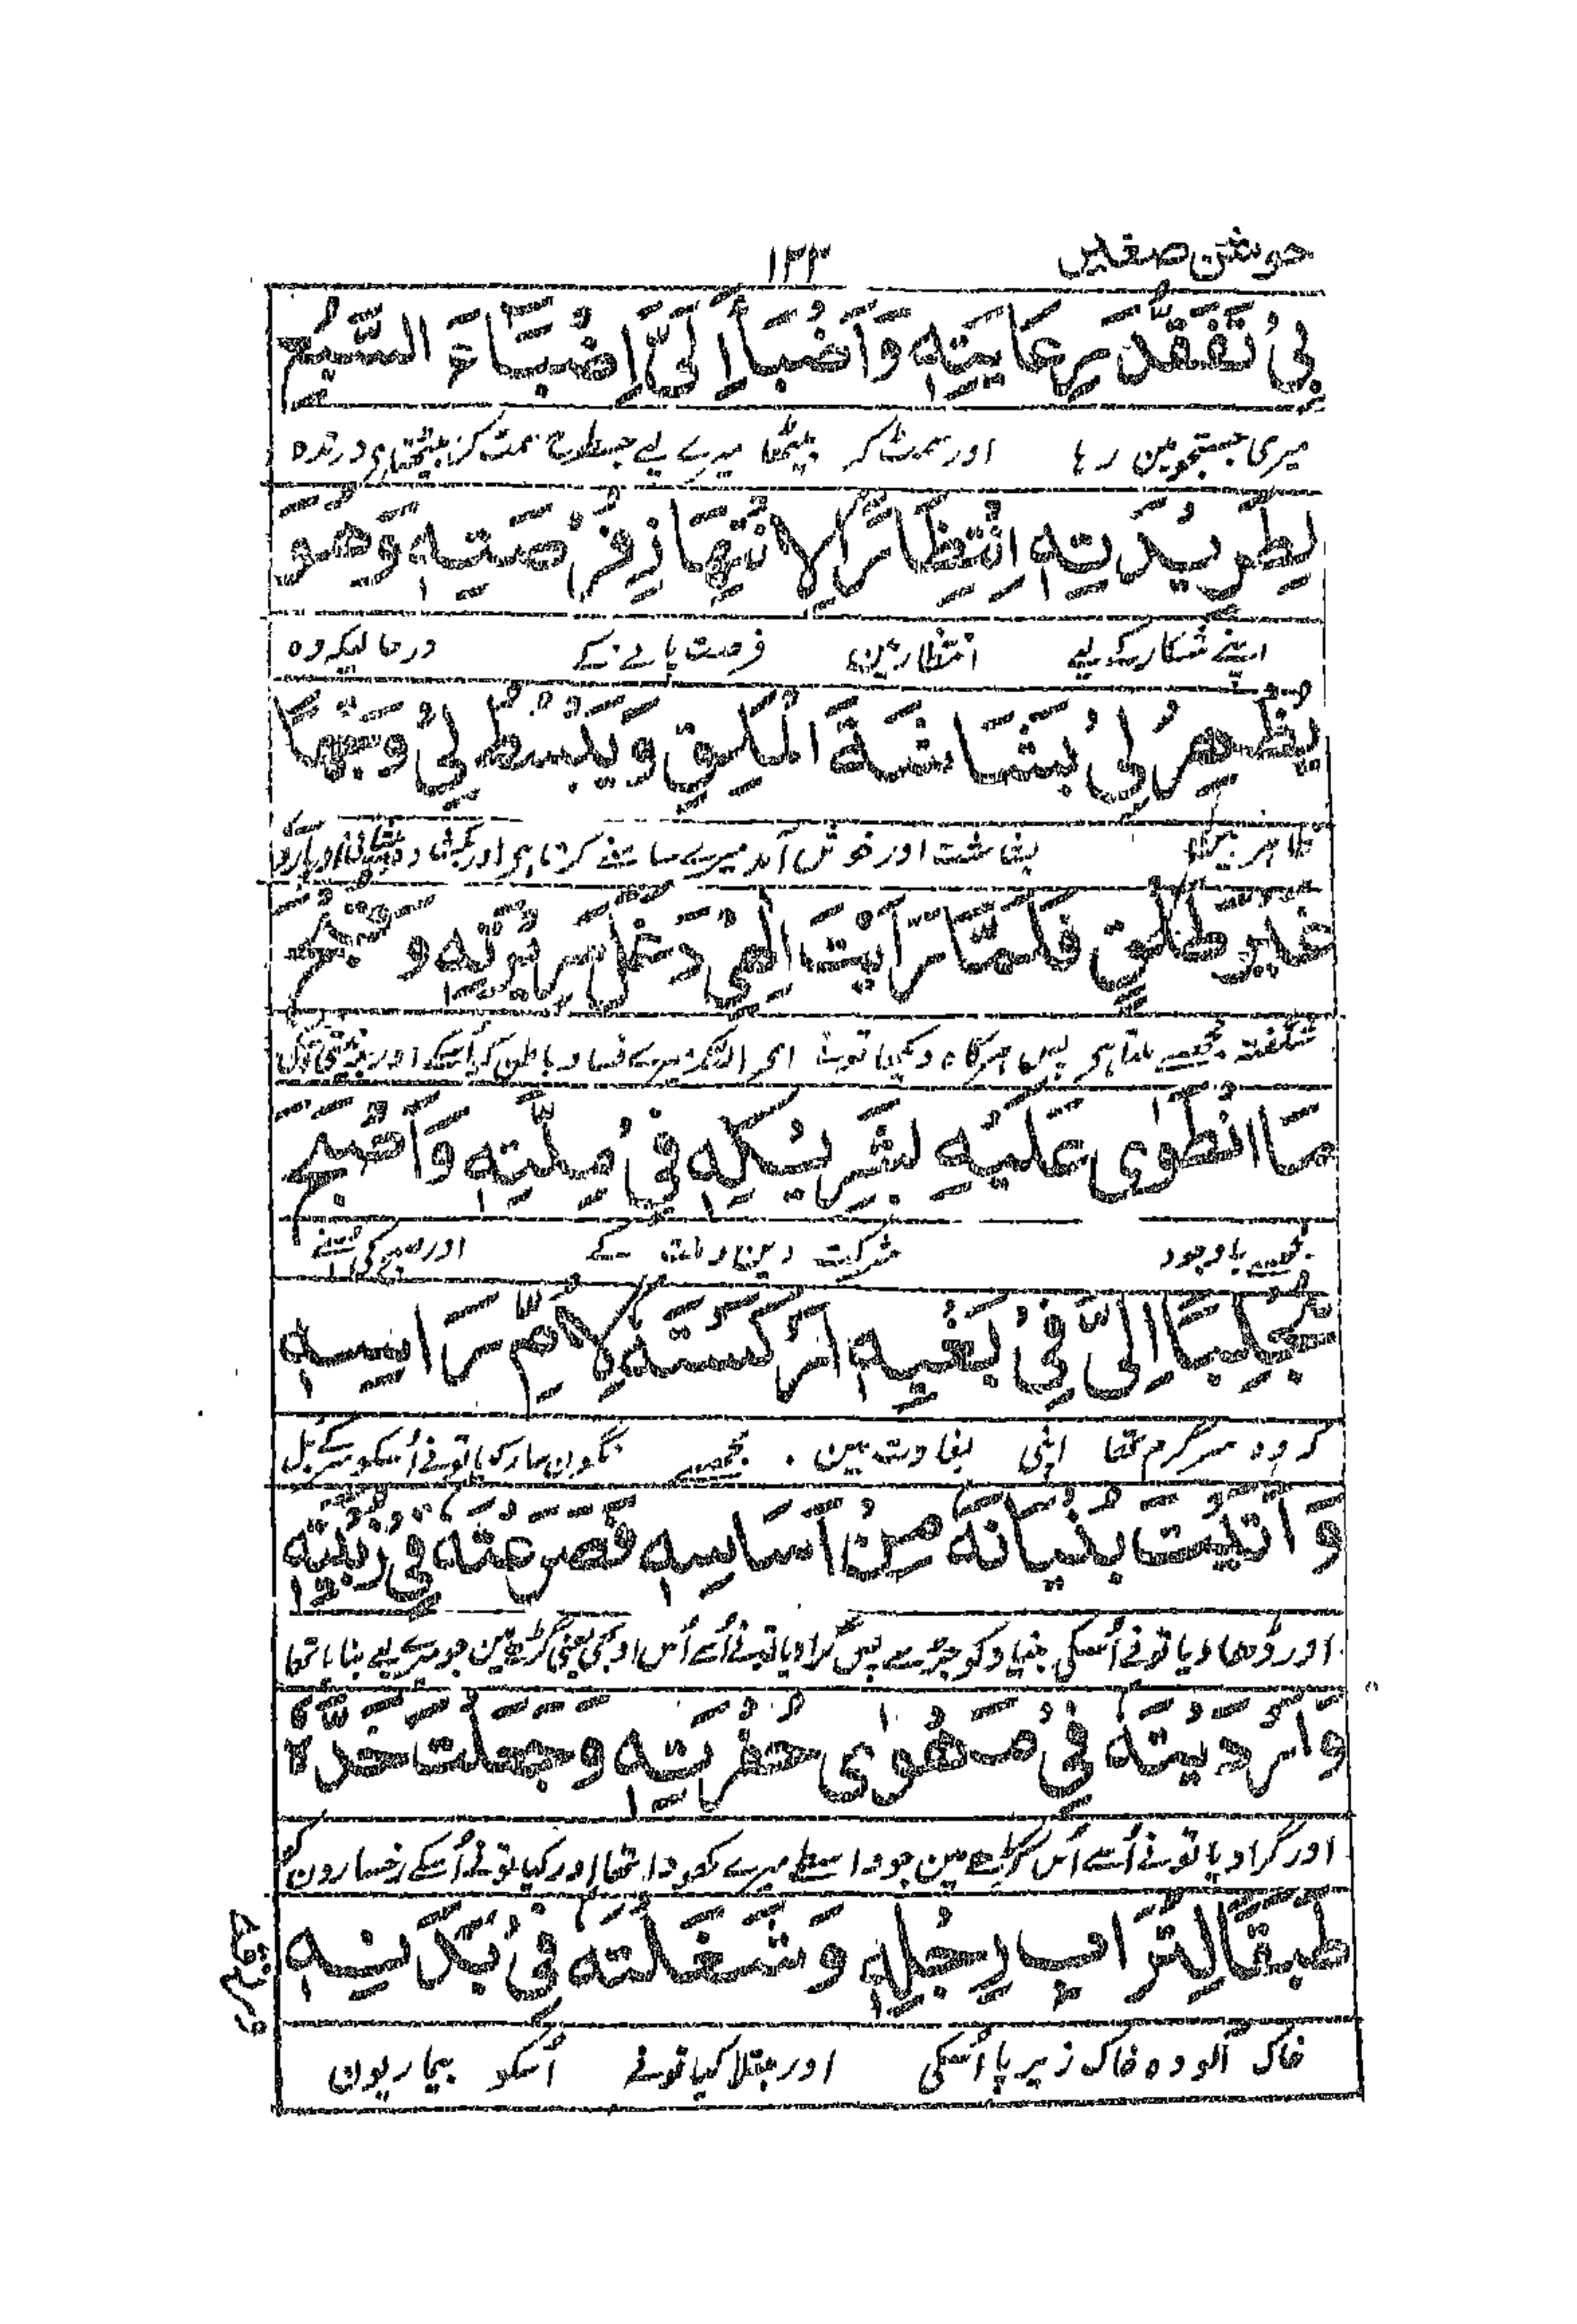 جوشن صغیر
۱۳۳
بِیْ تَفَقُّدَ رِعَایَتِهٖ وَاَضْبَأَ اِلَیَّ اِضْبَاءَ السَّبُعِ
میری جستجو مین رہا اور سمٹ کر بیٹھا میرے لیے جسطرح سمٹ کر بیٹھتا ہی درندہ
لِطَرِیْدَتِهٖ اِنْتِظَارًا لِانْتِهَازِ فُرْصَتِهٖ وَهُوَ
اپنے شکار کے لیے انتظار مین فرصت پانے کے درحالیکہ وہ
یُظْهِرُ لِیْ بَشَاشَةَ الْمَلَقِ وَیَبْسُطُ لِیْ وَجْهًا
بشاشت اور خوش آمد میرے سامنے کرتا ہی اور
غَیْرَ طَلِقٍ فَلَمَّا رَاَیْتَ اِلٰهِیْ دَغَلَ سَرِیْرَتِهٖ وَ قُبْحَ
شگفتہ مجھسے ملتا ہی پس ہرگاہ دیکھا تونے ای اللہ میرے فساد باطن کو اُسکے اور
مَا انْطَوٰی عَلَیْهِ لِشَرِیْکِهٖ فِیْ مِلَّتِهٖ وَاَصْبَحَ
مجھسے باوجود شرکت دین و ملت کے اور صبح کی اُسنے
مُجْلِبًا اِلَیَّ فِیْ بَغْیِهٖ اَرْکَسْتَهٗ لِاُمِّ رَاْسِهٖ
کہ وہ سرگرم تھا اپنی بغاوت مین مجھسے نگون سار کیا تونے اُسکو سر کے بل
وَاَتَیْتَ بُنْیَانَهٗ مِنْ اَسَاسِهٖ فَصَرَعْتَهٗ فِیْ زُبْیَتِهٖ
اور ڈھا دیا تونے اُسکی بنیاد کو جڑ سے پس گرا دیا تونے اُسے اُس اوبھی یعنی گڑھے مین جو میرے لیے بنایا تھا
وَاَرْدَیْتَهٗ فِیْ مَهْوٰی حُفْرَتِهٖ وَجَعَلْتَ خَدَّهٗ
اور گرا دیا تونے اُسے اُس گڑھے مین جو واسطے میرے کھودا تھا اور کیا تونے اُسکے رخسارون کو
طَبَقًا لِتُرَابِ رِجْلِهٖ وَشَغَلْتَهٗ فِیْ بَدَنِهٖ
خاک آلودہ خاک زیر پا اُسکی اور مبتلا کیا تونے اُسکو بیماریون